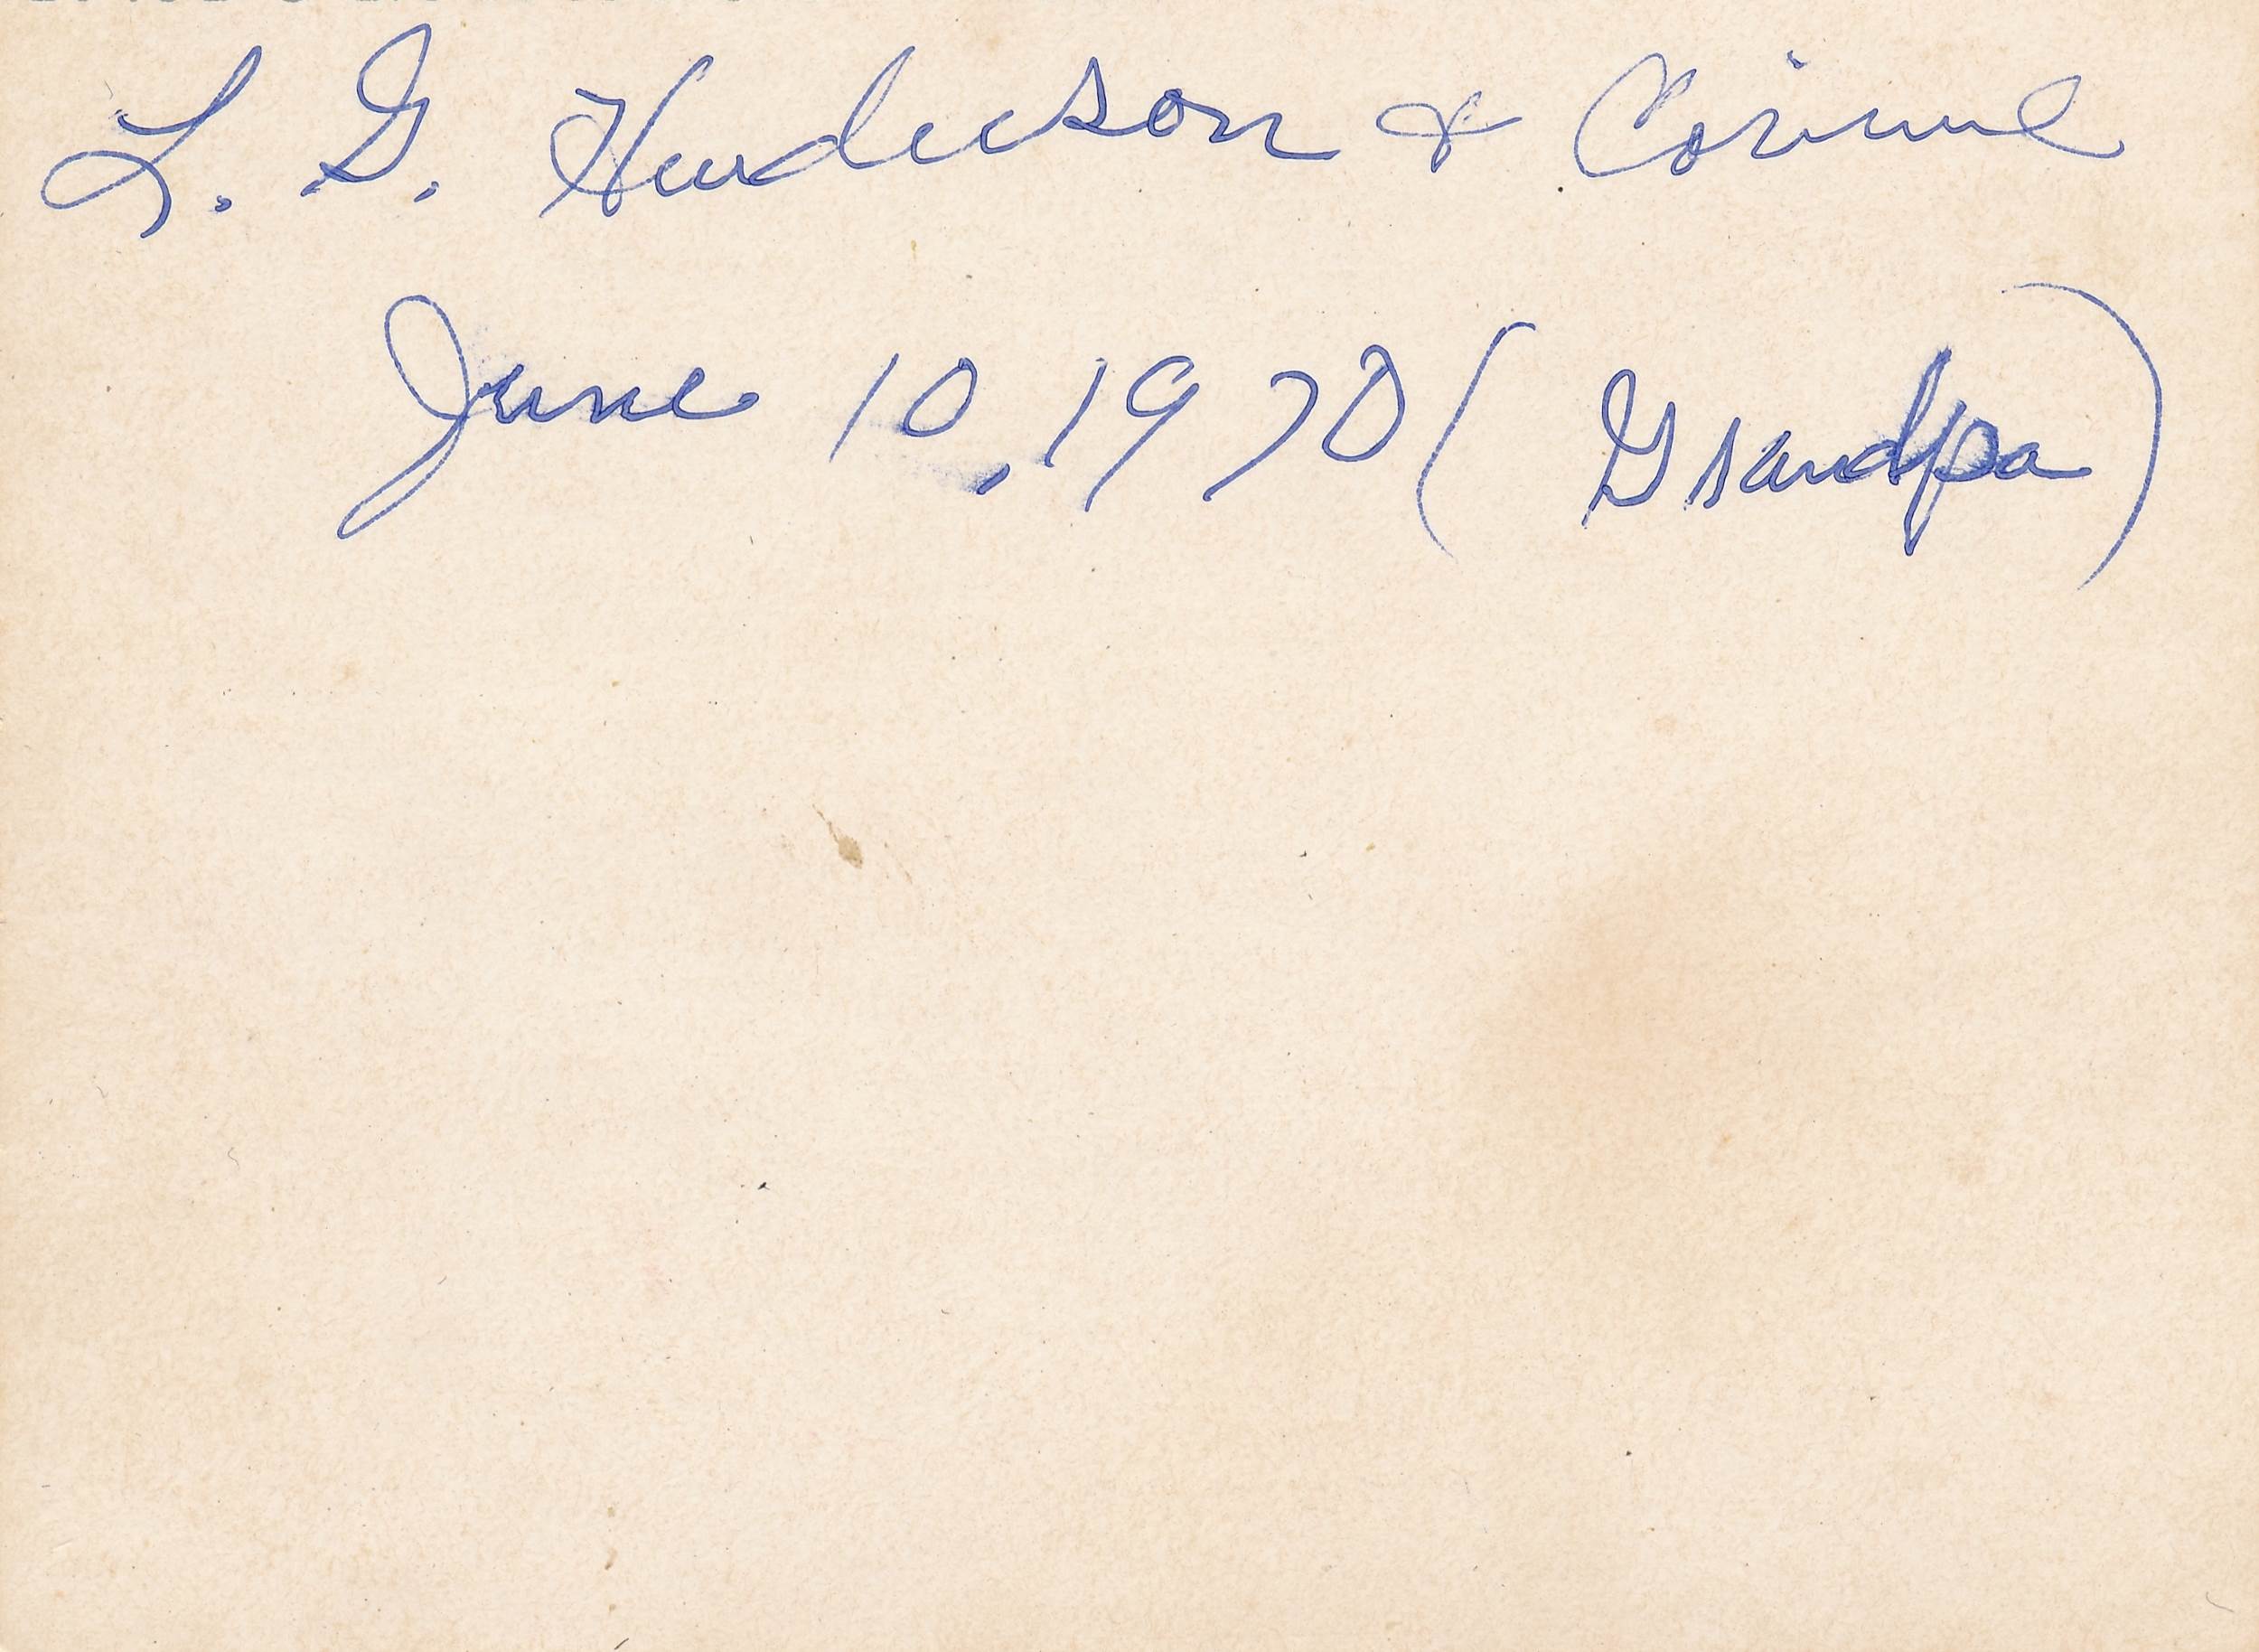 L. G. Henderson & Corinne
June 10, 1970 (Grandpa)